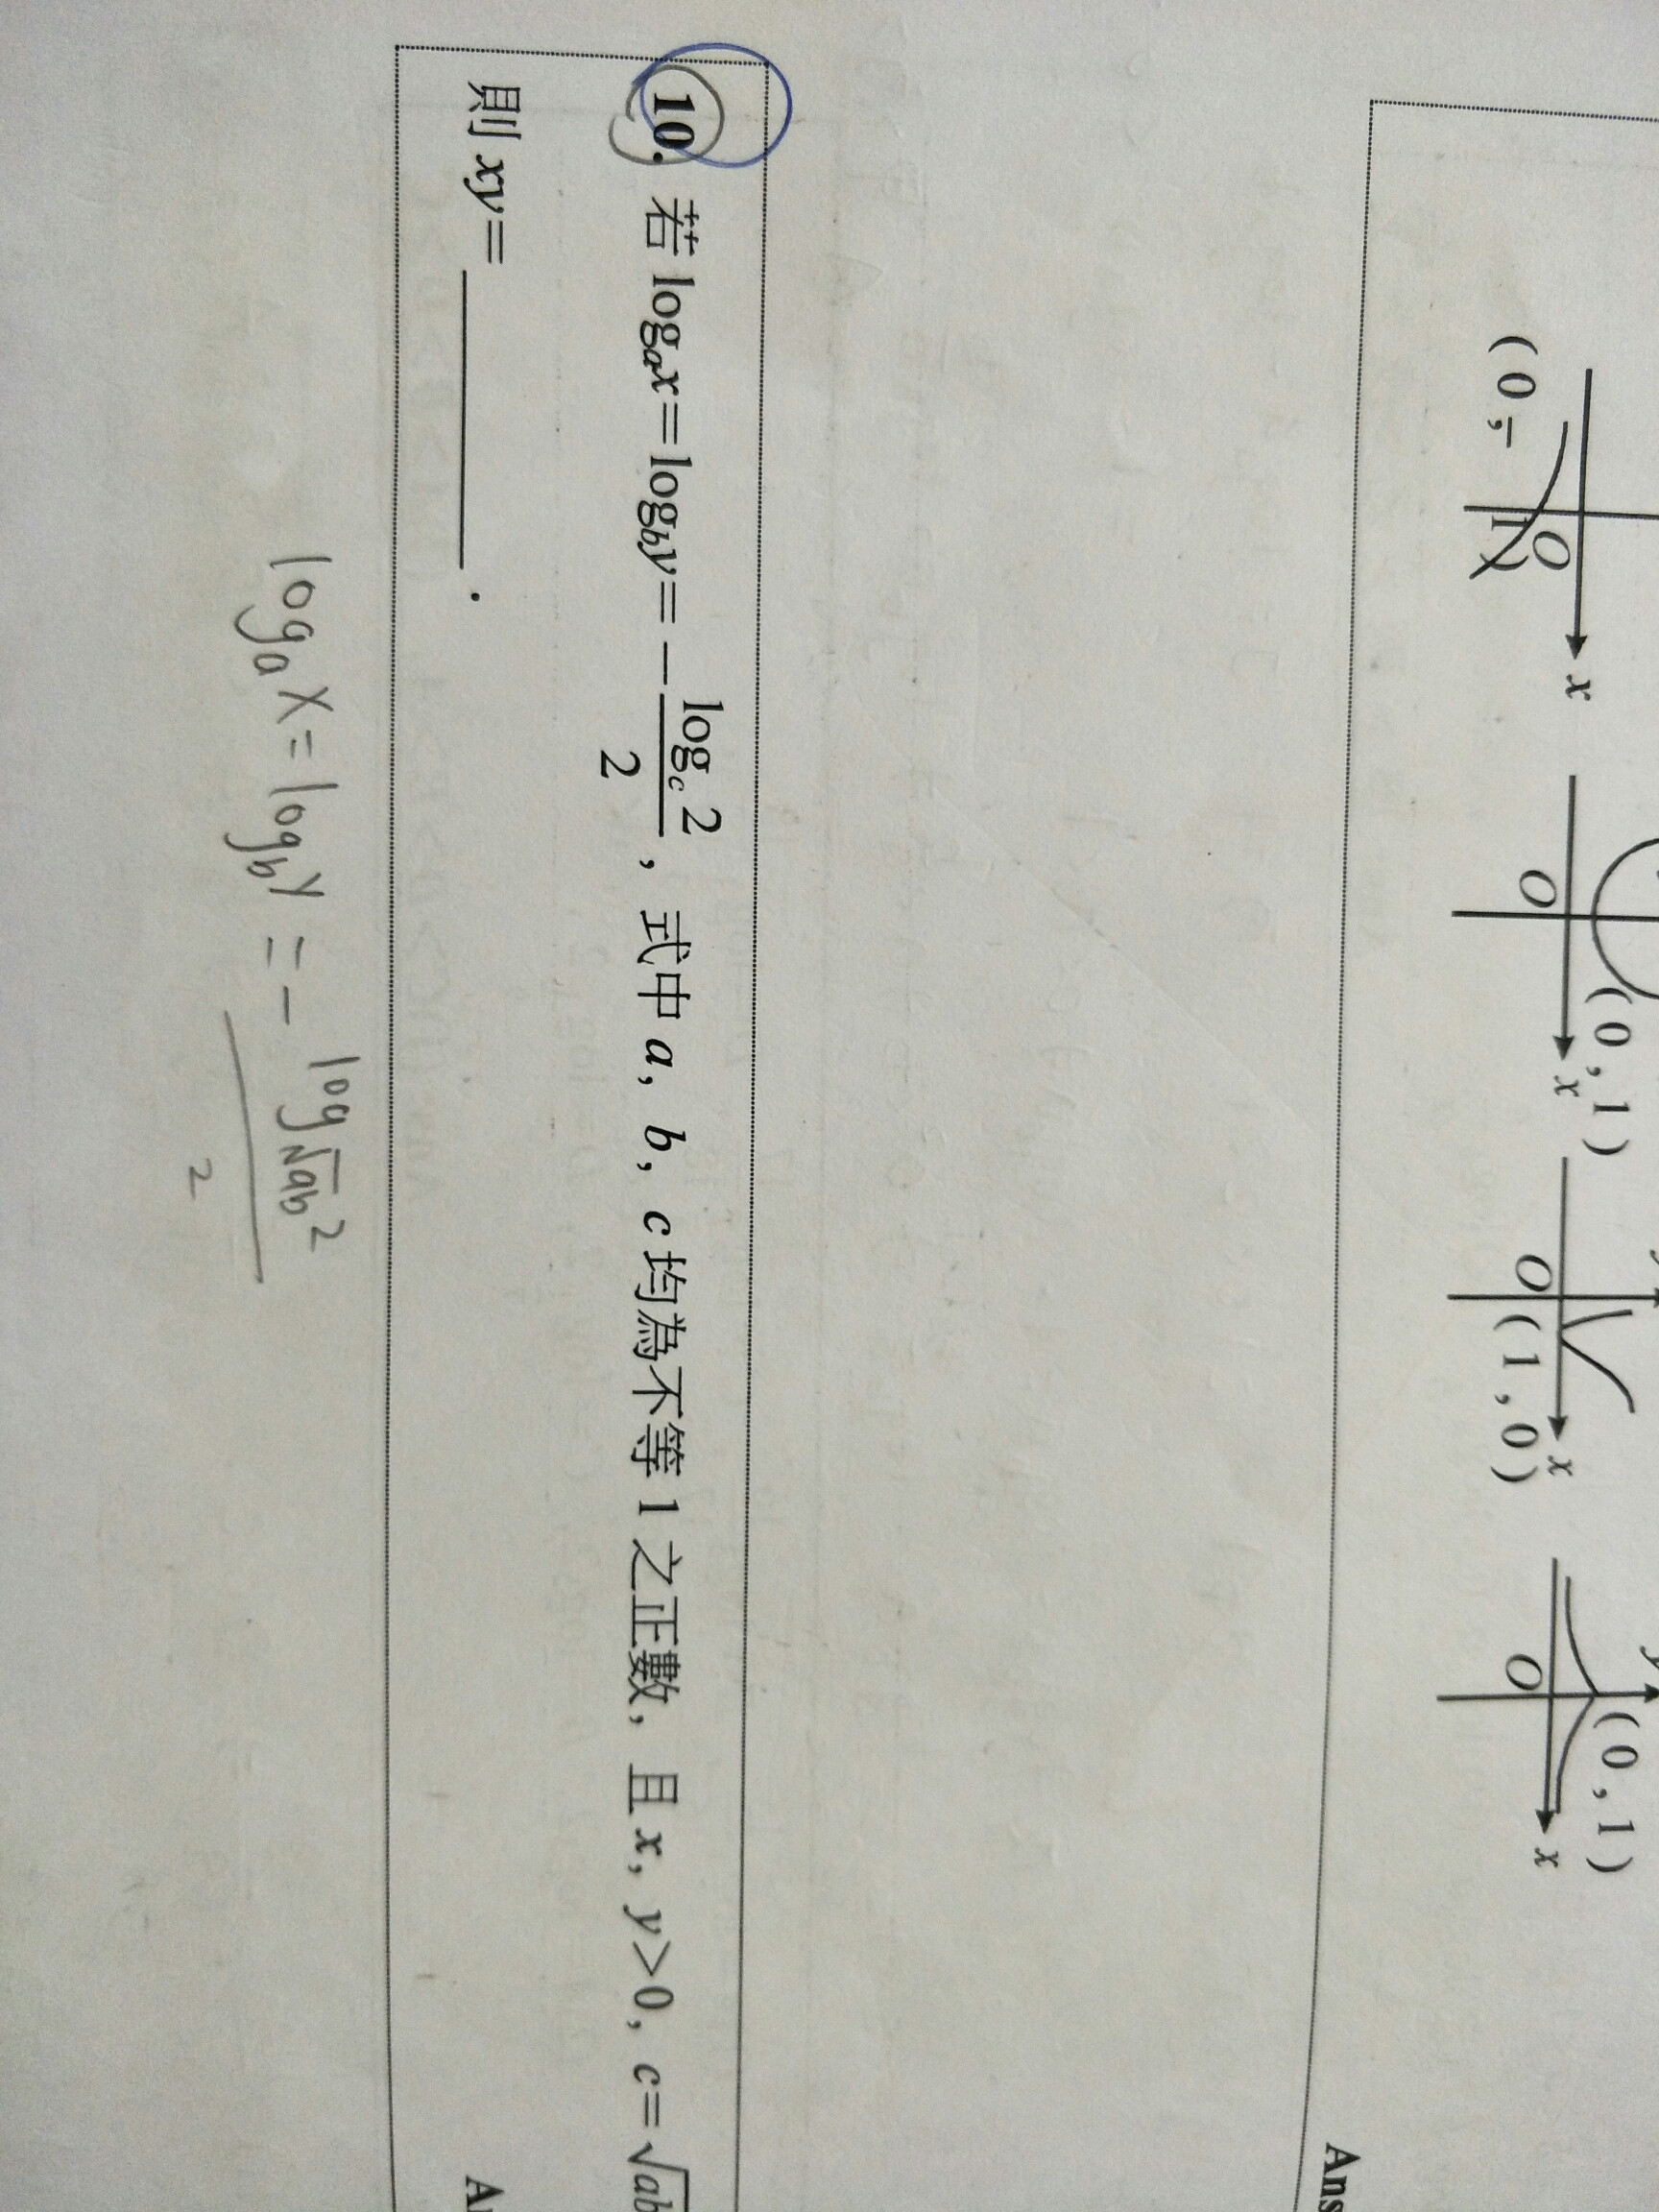 y
y
O
x
(0,-1)
O
x
(0,1)
O
x
(1,0)
O
x
(0,1)
Ans
10. 若 logₐx=log_b y=-\frac{log_c 2}{2}, 式中 a, b, c 均為不等 1 之正數, 且 x, y>0, c=√ab
則 xy=________.
logₐX=log_b Y=-\frac{log_{√ab} 2}{2}